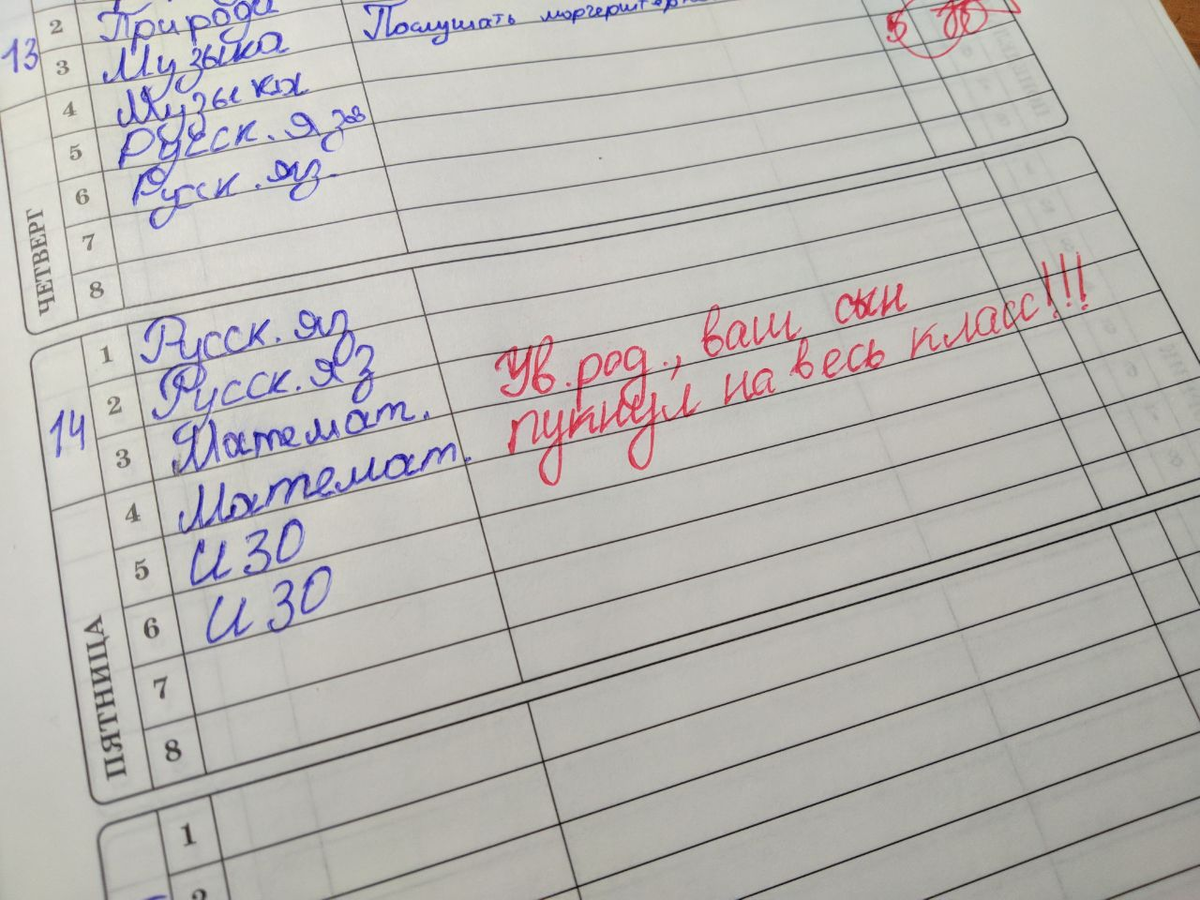 13
2 Природа
3 Музыка Послушать моргенштерна 5
4 Музыка
5 Русск. яз
6 Русск. яз.
7
8
ЧЕТВЕРГ
14
1 Русск. яз
2 Русск. яз Ув. род., ваш сын
3 Математ. пукнул на весь класс!!!
4 Математ.
5 ИЗО
6 ИЗО
7
8
ПЯТНИЦА
1
2